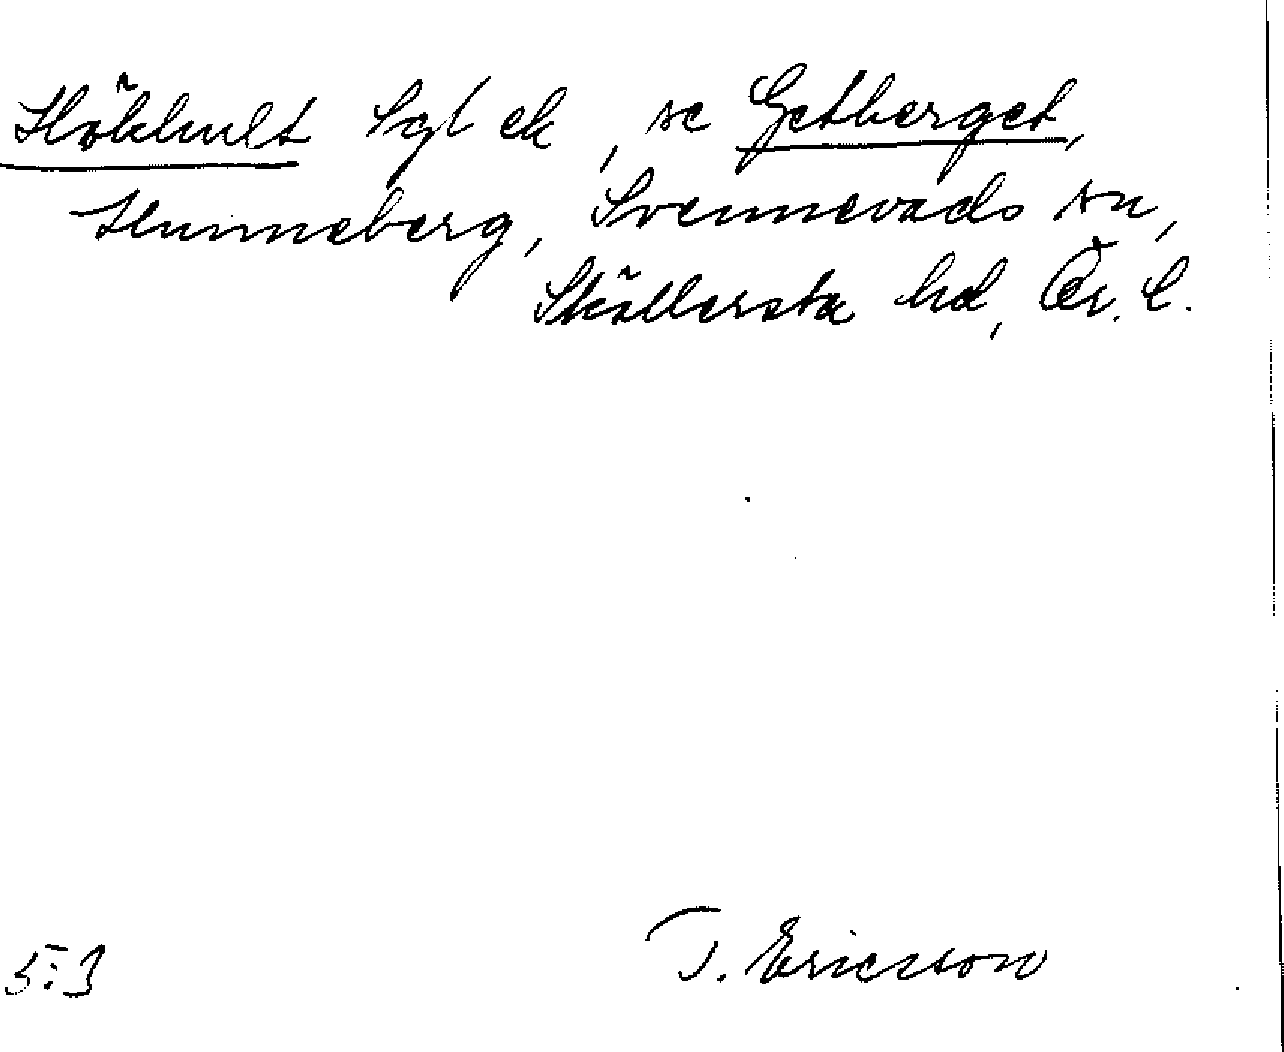 Hökhult Lgt ek, se Getberget,
Hunneberg, Svennevads sn,
Sköllersta hd, Ör. l.
T. Ericsson
5:3